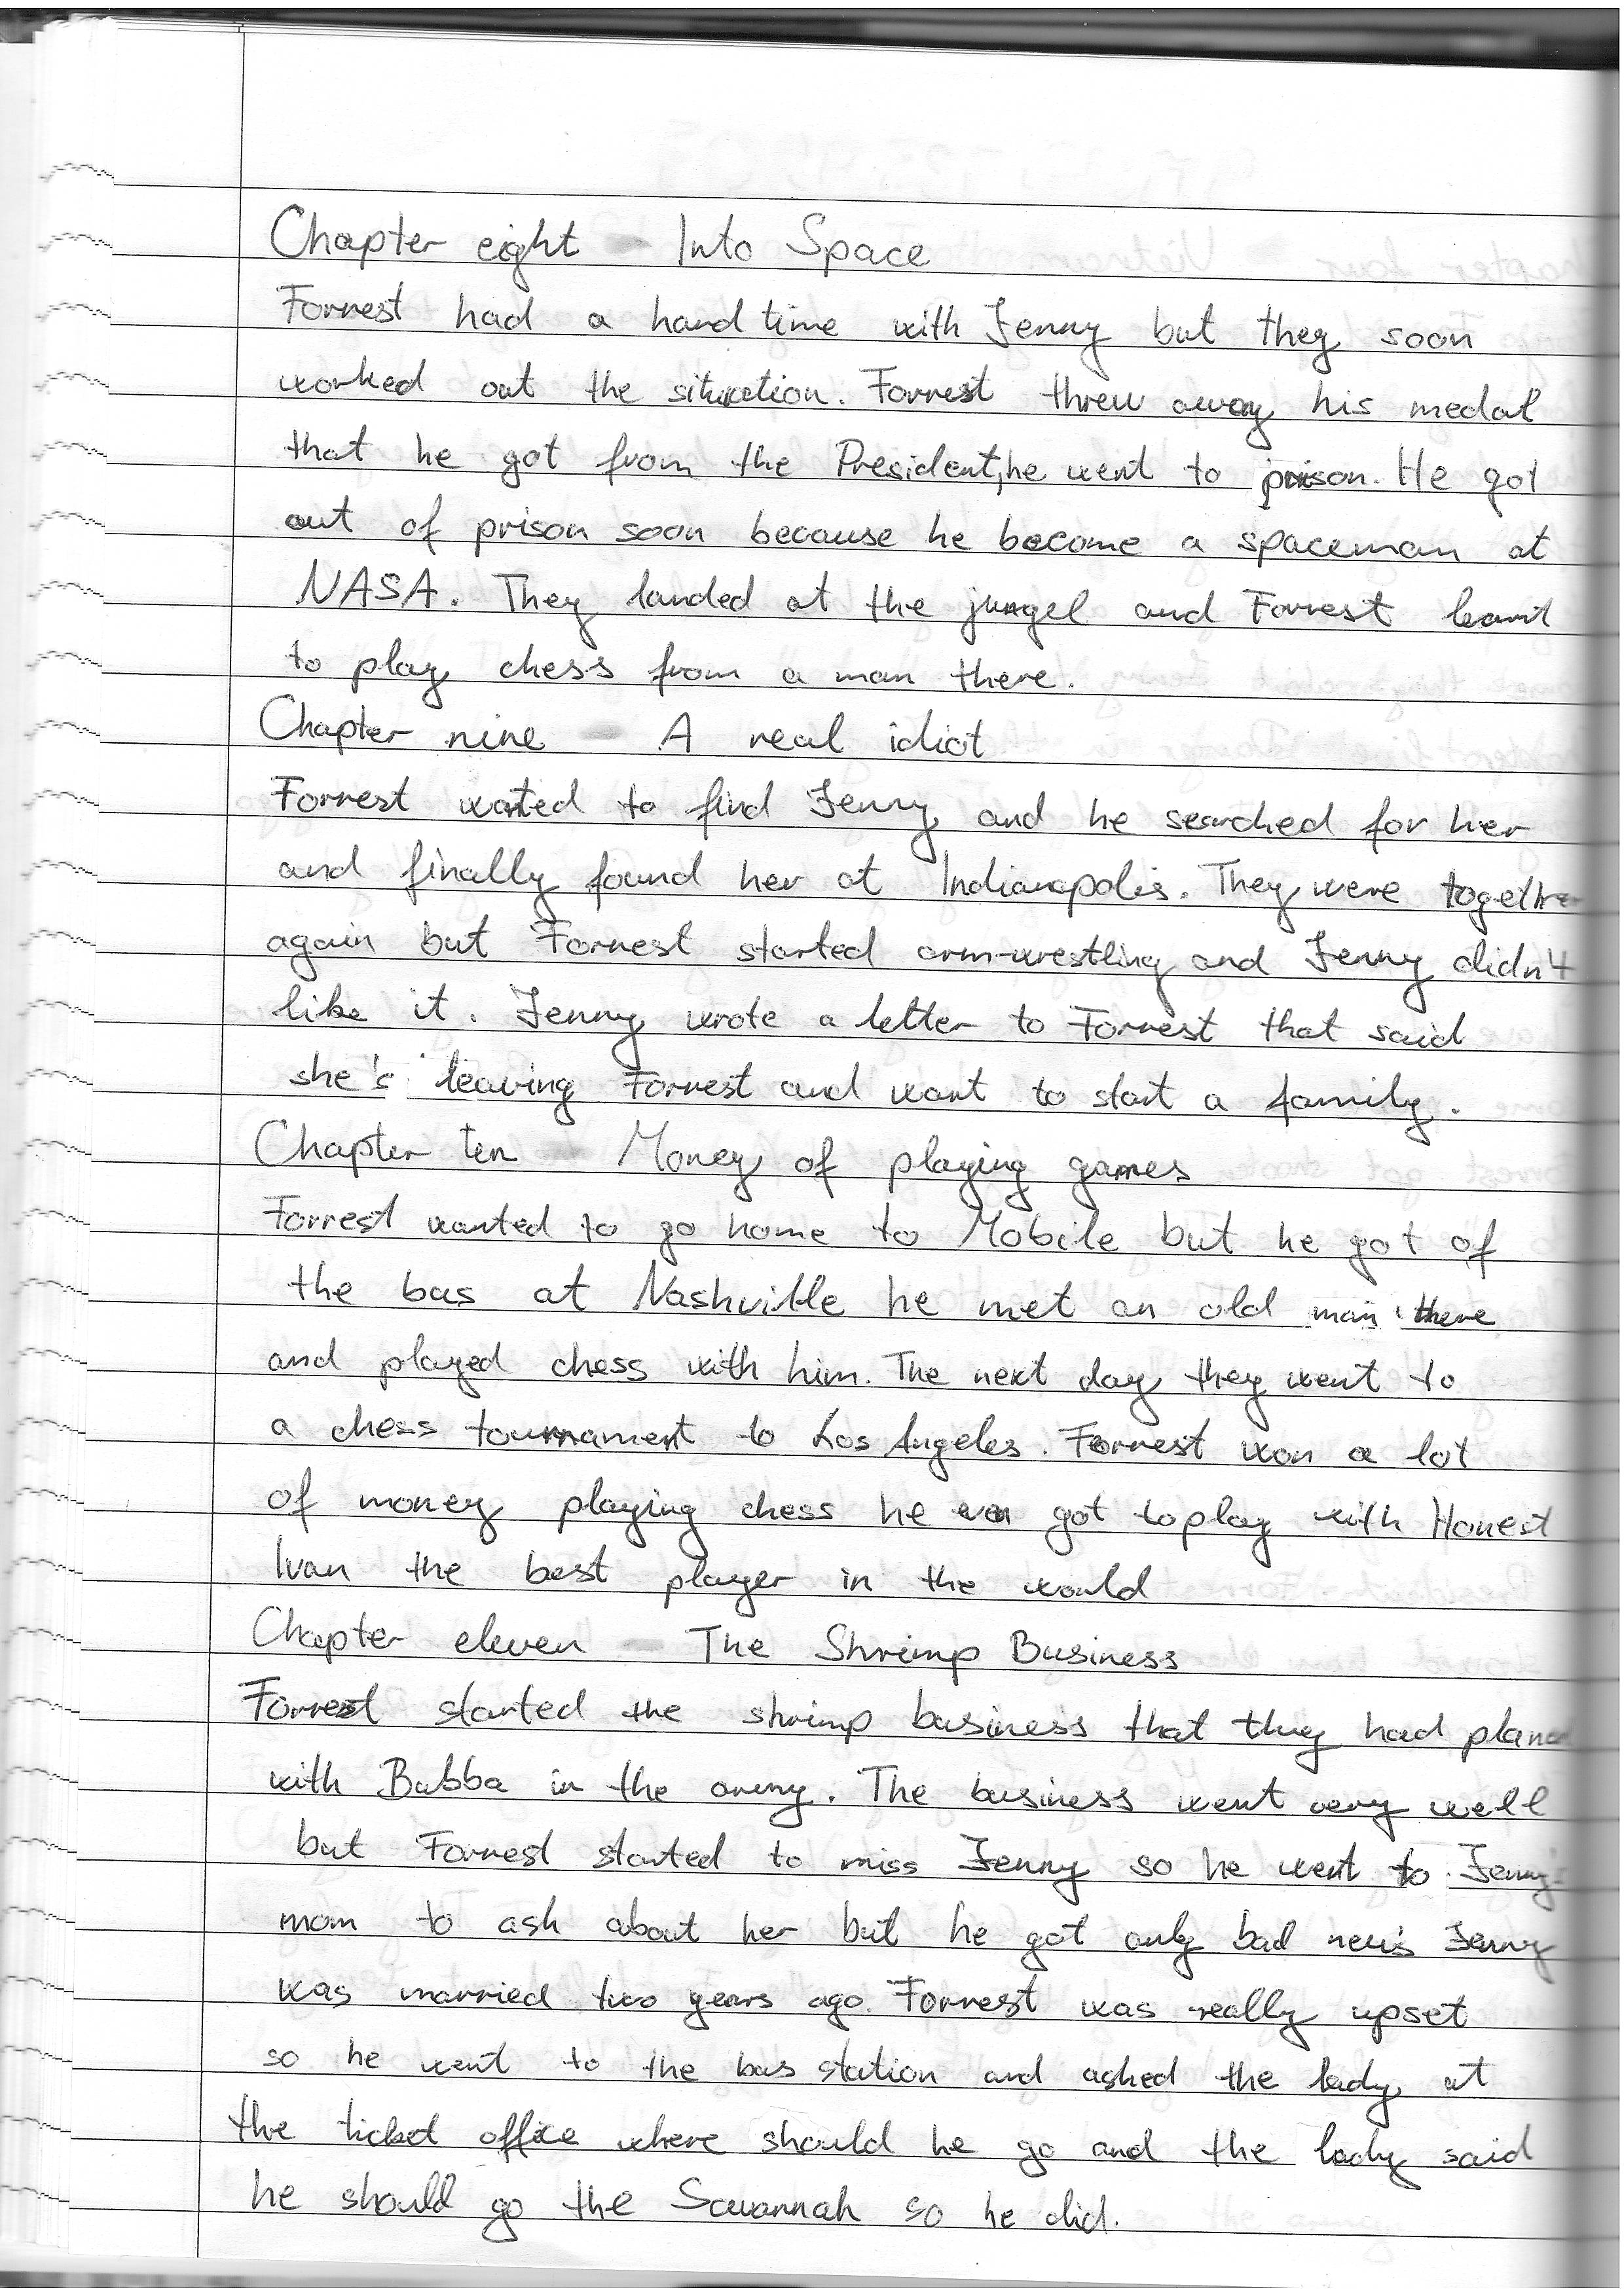 Chapter eight - Into Space
Forrest had a hard time with Jenny but they soon
worked out the situation. Forrest threw away his medal
that he got from the President, he went to prison. He got
out of prison soon because he become a spaceman at
NASA. They landed at the jungel and Forrest learnt
to play chess from a man there.
Chapter nine - A real idiot
Forrest wanted to find Jenny and he searched for her
and finally found her at Indianapolis. They were together
again but Forrest started arm-wrestling and Jenny didn't
like it. Jenny wrote a letter to Forrest that said
she's leaving Forrest and want to start a family.
Chapter ten - Money of playing games
Forrest wanted to go home to Mobile but he got of
the bus at Nashville he met an old man there
and played chess with him. The next day they went to
a chess tournament to Los Angeles. Forrest won a lot
of money playing chess he even got to play with Honest
Ivan the best player in the would
Chapter eleven - The Shrimp Business
Forrest started the shrimp business that they had planed
with Bubba in the army. The business went very well
but Forrest started to miss Jenny so he went to Jenny's
mom to ask about her but he got only bad news Jenny
was married two years ago. Forrest was really upset
so he went to the bus station and asked the lady at
the ticket office where should he go and the lady said
he should go the Savannah so he did.